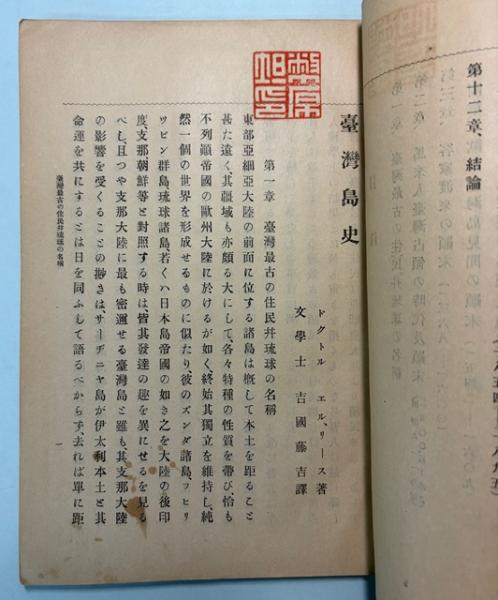 第十二章、結論
臺灣島史
ドクトル エル、リース著
文學士 吉國藤吉譯
第一章 臺灣最古の住民幷琉球の名稱
東部亞細亞大陸の前面に位する諸島は概して本土を距ること
甚た遠く其疆域も亦頗る大にして、各々特種の性質を帶び、恰も
不列顚帝國の歐洲大陸に於けるが如く、終始其獨立を維持し、純
然一個の世界を形成せるものに似たり、彼のズンダ諸島、フヒリ
ツピン群島、琉球諸島、若くハ日本島帝國の如き之を大陸の後印
度、支那朝鮮等と對照する時は、皆其發達の趣を異にせるを見る
べし、且つや支那大陸に最も密邇せる臺灣島と雖も其支那大陸
の影響を受くることの尠きは、サーヂニヤ島が伊太利本土と其
命運を共にするとは日を同ふして語るべからず、去れば單に距
臺灣最古の住民幷琉球の名稱
一